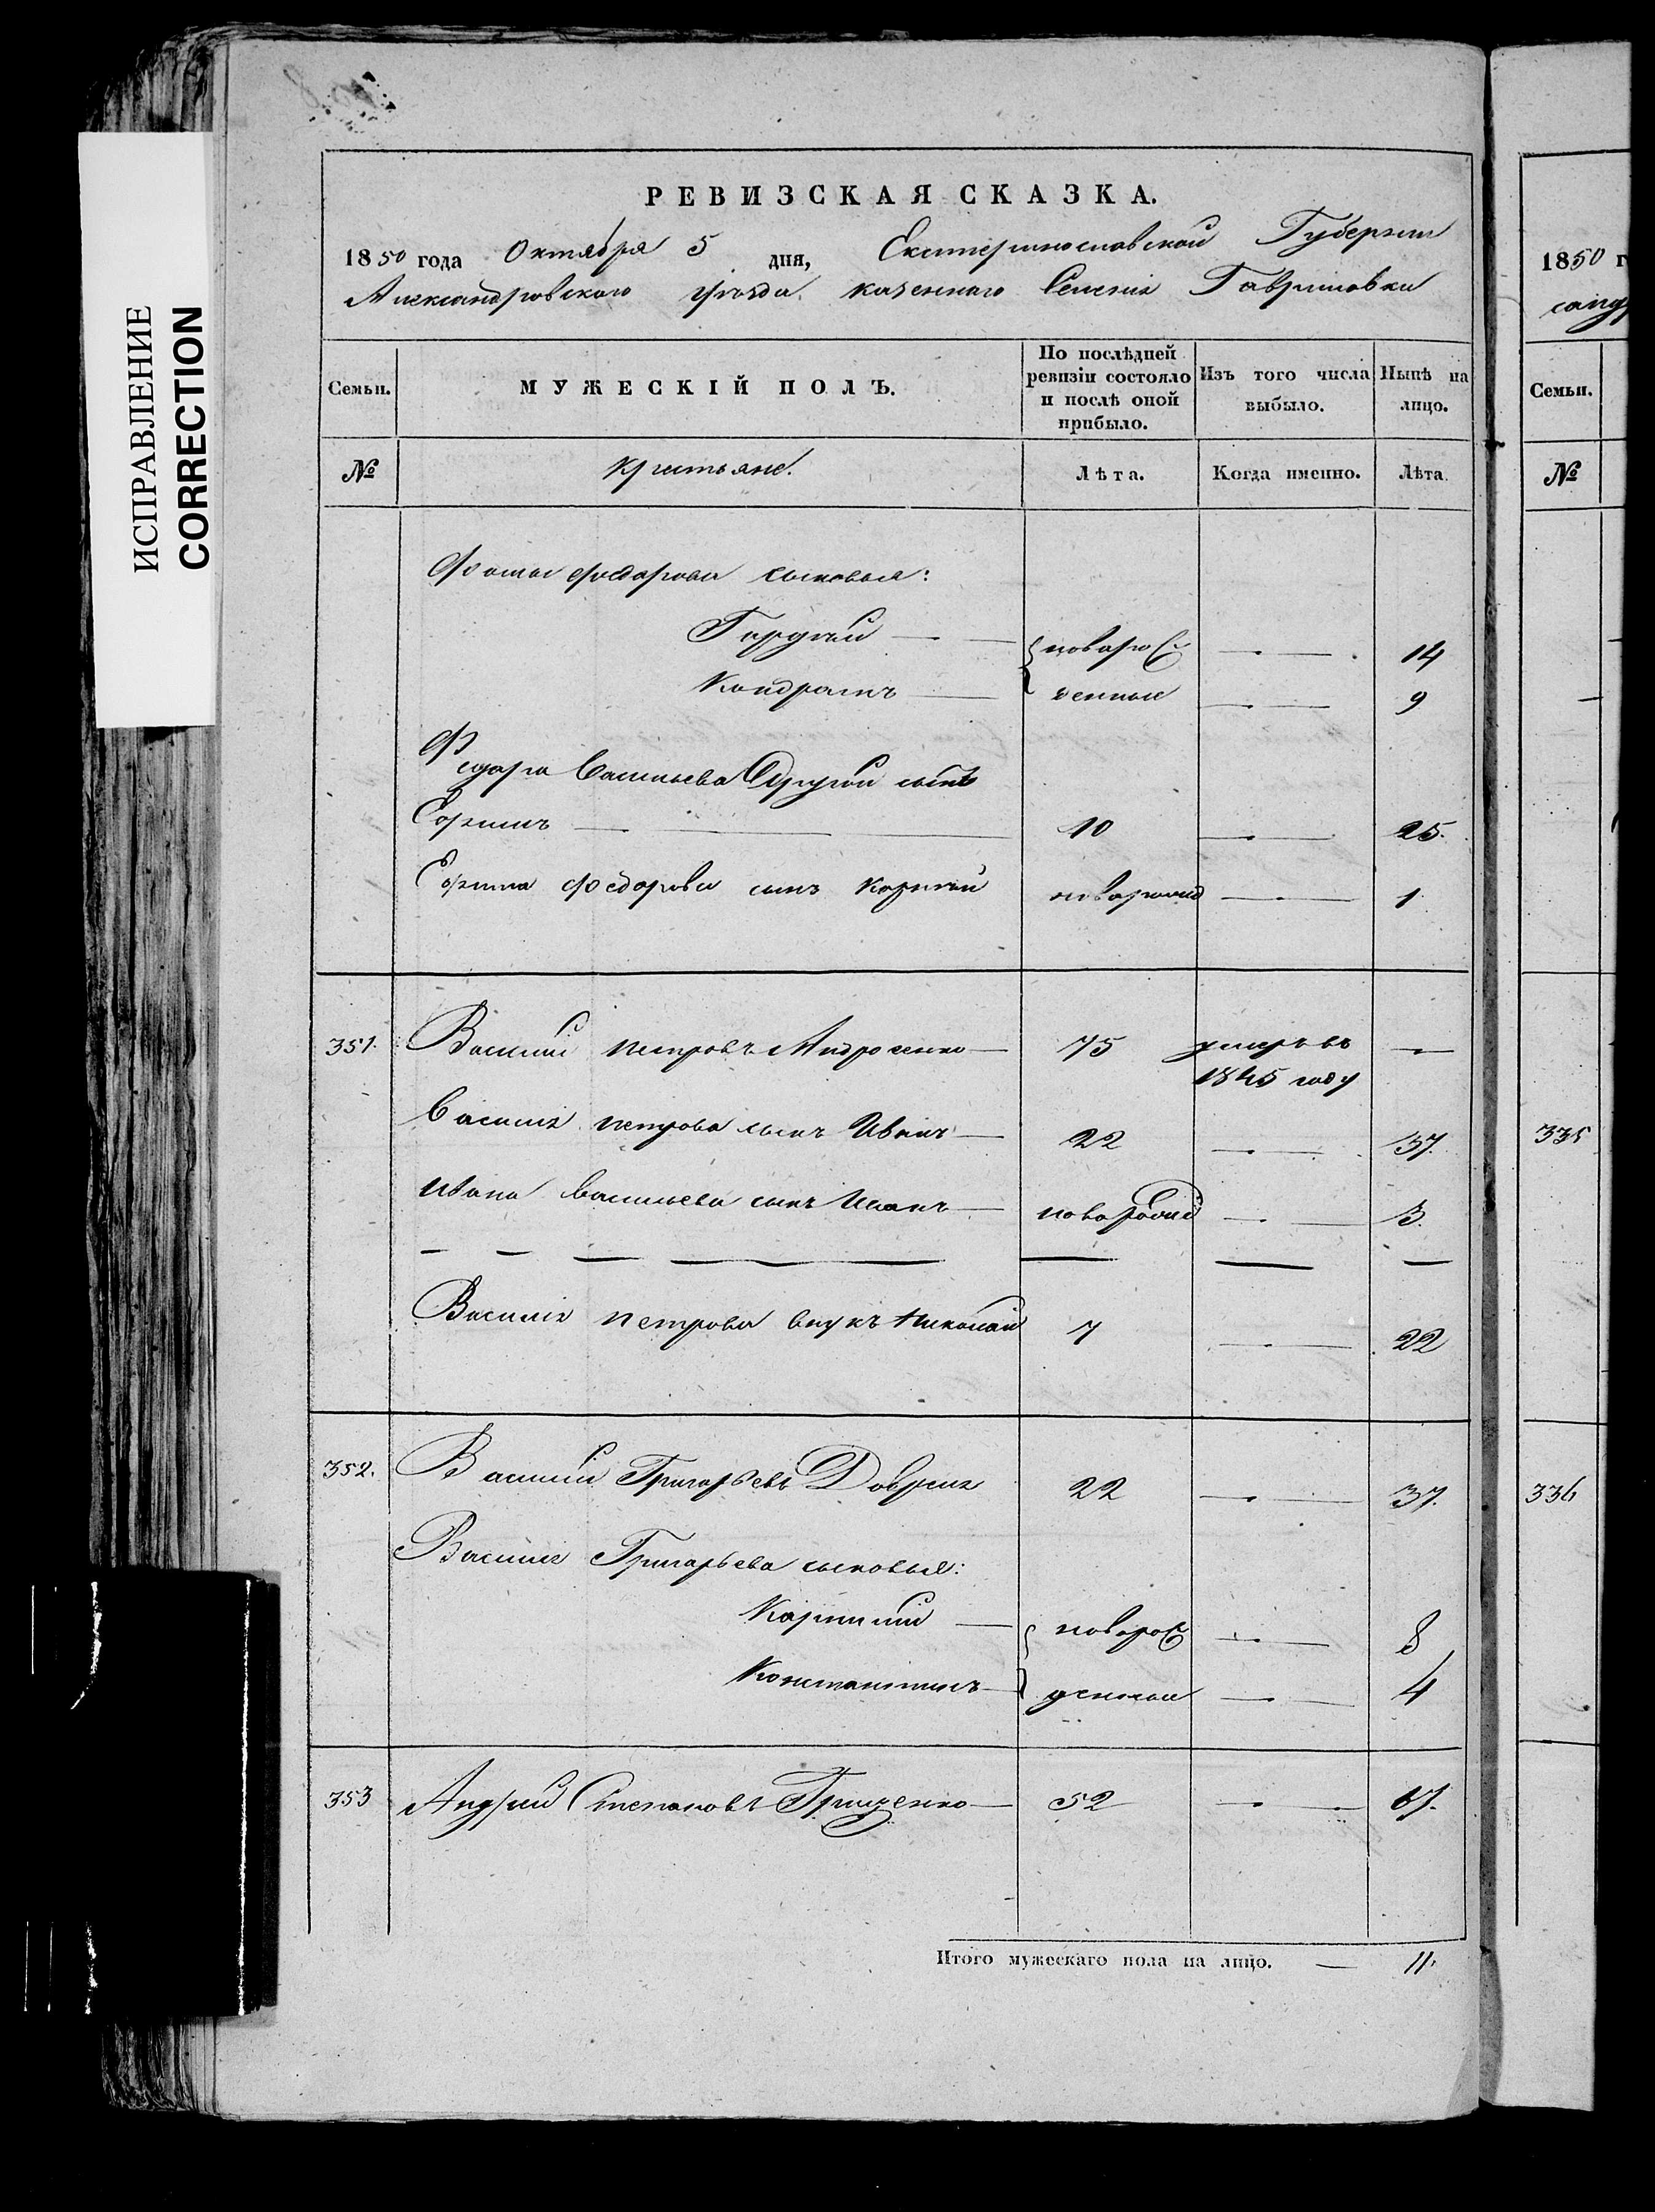 ИСПРАВЛЕНИЕ
CORRECTION
РЕВИЗСКАЯ СКАЗКА.
1850 года Октября 5 дня, Екатеринославской Губернии
Александровскаго уѣзда казеннаго Селенія Гавриловки
Семьи. МУЖЕСКІЙ ПОЛЪ. По послѣдней ревизіи состояло и послѣ оной прибыло. Изъ того числа выбыло. Нынѣ на лицо.
№ Крестьяне. Лѣта. Когда именно. Лѣта.
Фомы Федорова сыновья:
Гордѣй — новорож 14
Кондратъ — денные 9
Федора Васильева Другой сынъ
10 25.
Федорова сынъ Корнѣй новорожд 1
351. Василій Петровъ Андросенко — 75 умеръ въ 1845 году —
Василія Петрова сынъ Иванъ — 22 37.
Ивана Васильева сынъ Исакъ — новорожд 3.
Василія Петрова внукъ Николай 7 22
352. Василій Григорьевъ 22 37.
Василія Григорьева сыновья:
— новорож 8
Константинъ — денные 4
353 Андрей Степановъ Грищенко — 52 67.
Итого мужескаго пола на лицо. — 11.
1850 г
Семьи.
№
335
336